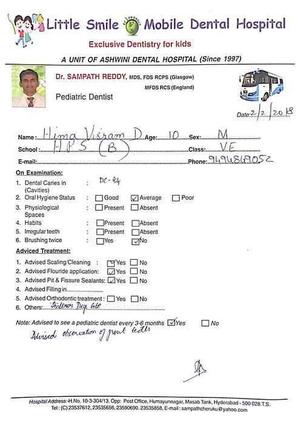 Little Smile Mobile Dental Hospital
Exclusive Dentistry for kids
A UNIT OF ASHWINI DENTAL HOSPITAL (Since 1997)
Dr. SAMPATH REDDY, MDS, FDS RCPS (Glasgow)
MFDS RCS (England)
Pediatric Dentist
Date: 2/2/2018
Name: Hima Vikram D Age: 10 Sex: M
School: HPS (B) Class: V E
E-mail: Phone: 9494849052
On Examination:
1. Dental Caries in : DC-
(Cavities)
2. Oral Hygiene Status : Good Average Poor
3. Physiological : Present Absent
Spaces
4. Habits : Present Absent
5. Irregular teeth : Present Absent
6. Brushing twice : Yes No
Adviced Treatment:
1. Advised Scaling/Cleaning : Yes No
2. Advised Flouride application: Yes No
3. Advised Pit & Fissure Sealants: Yes No
4. Advised Filling in
5. Advised Orthodontic treatment : Yes No
6. Others:
Note: Advised to see a pediatric dentist every 3-6 months Yes No
Advised observation of teeth
Hospital Address-H.No. 10-3-304/13, Opp: Post Office, Humayunnagar, Masab Tank, Hyderabad - 500 028 T.S.
Tel: (C) 23537612, 23535656, 23590690, 23535858, E-mail: sampathcheruku@yahoo.com